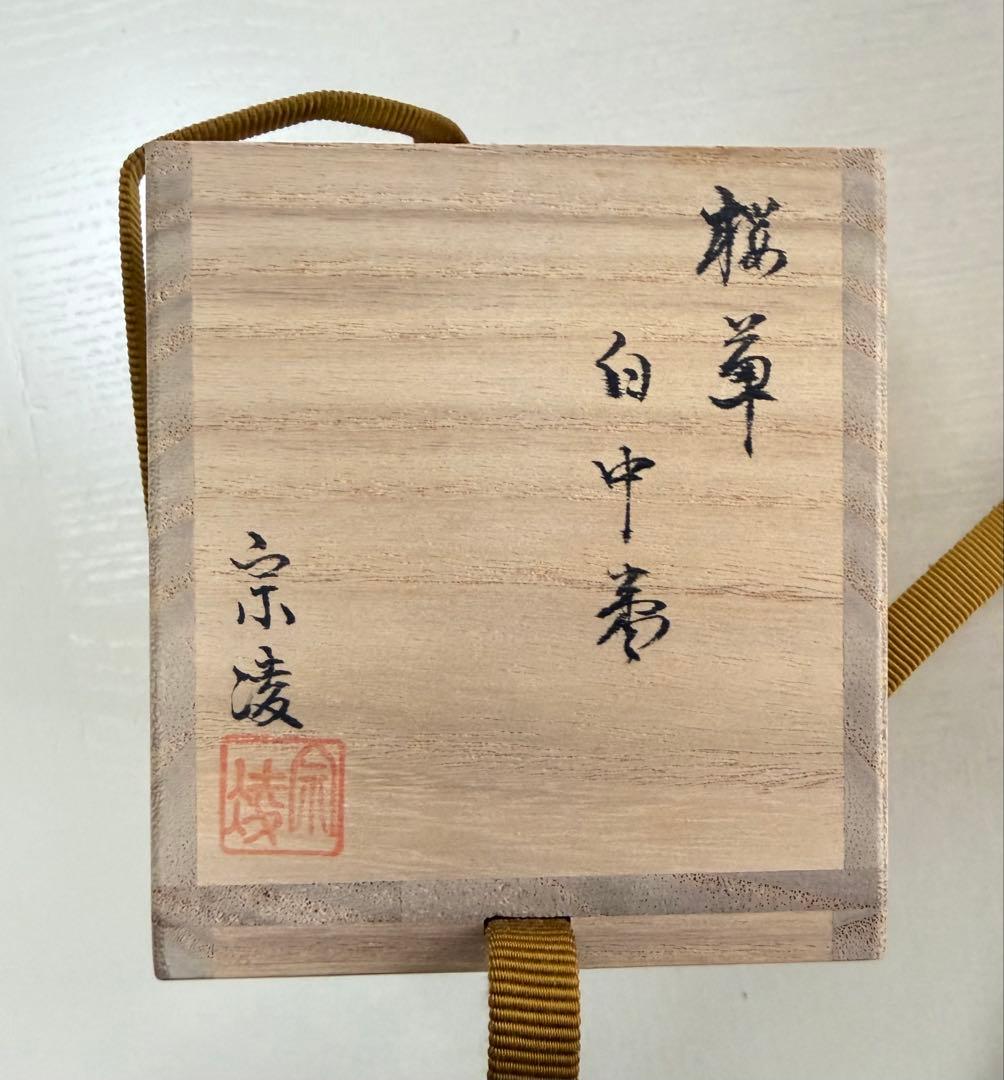 櫻草
白中棗
宗凌
宗凌